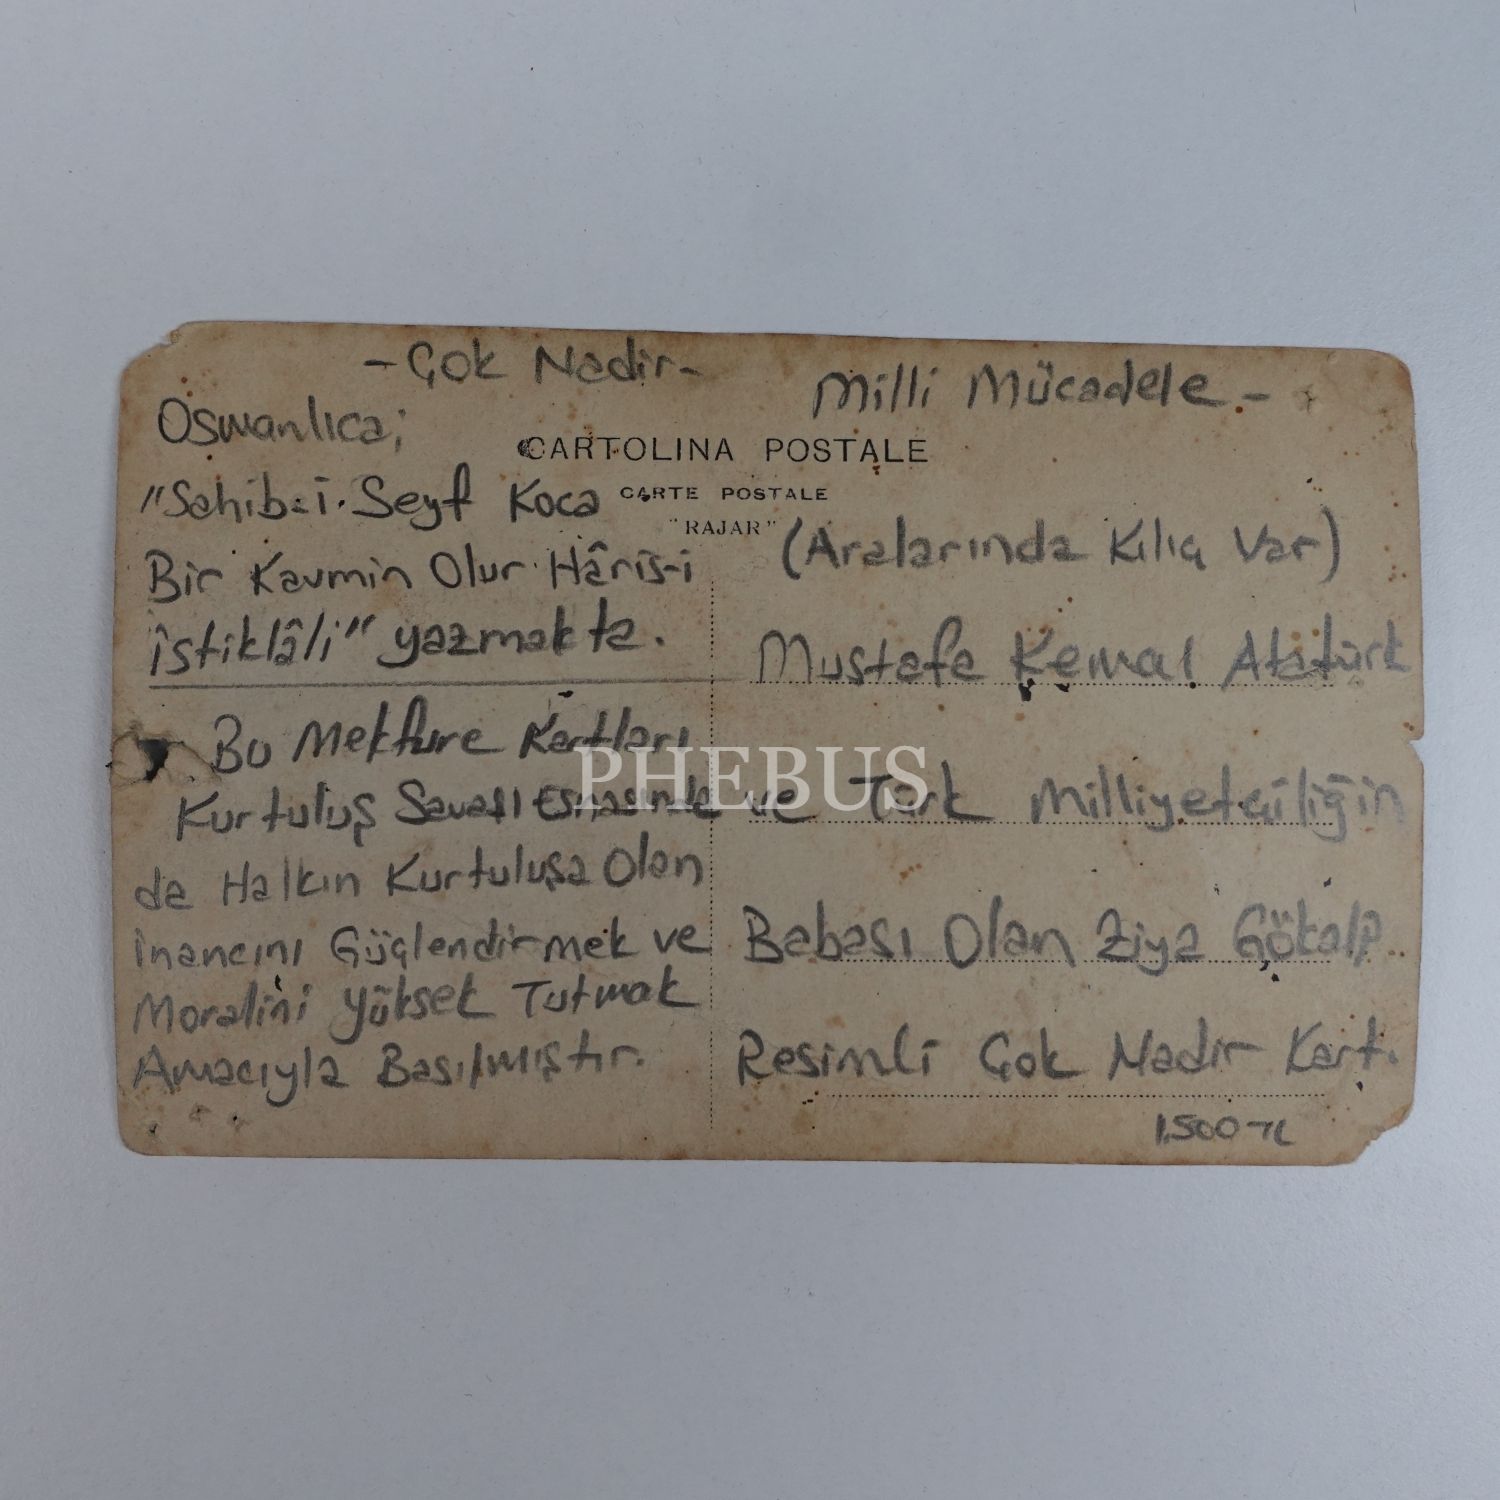 -Çok Nadir-
Milli Mücadele-
Osmanlıca;
CARTOLINA POSTALE
"Sahib-i Seyf Koca
CARTE POSTALE
"RAJAR"
Bir Kavmin Olur Hâris-i
İstiklâli" yazmakta.
Bu Mefkure Kartları
Kurtuluş Savaşı Esnasında
da Halkın Kurtuluşa Olan
İnancını Güçlendirmek ve
Moralini Yüksek Tutmak
Amacıyla Basılmıştır.
(Aralarında Kılıç Var)
Mustafa Kemal Atatürk
ve Türk Milliyetçiliğin
Babası Olan Ziya Gökalp
Resimli Çok Nadir Kart.
1.500 TL
PHEBUS